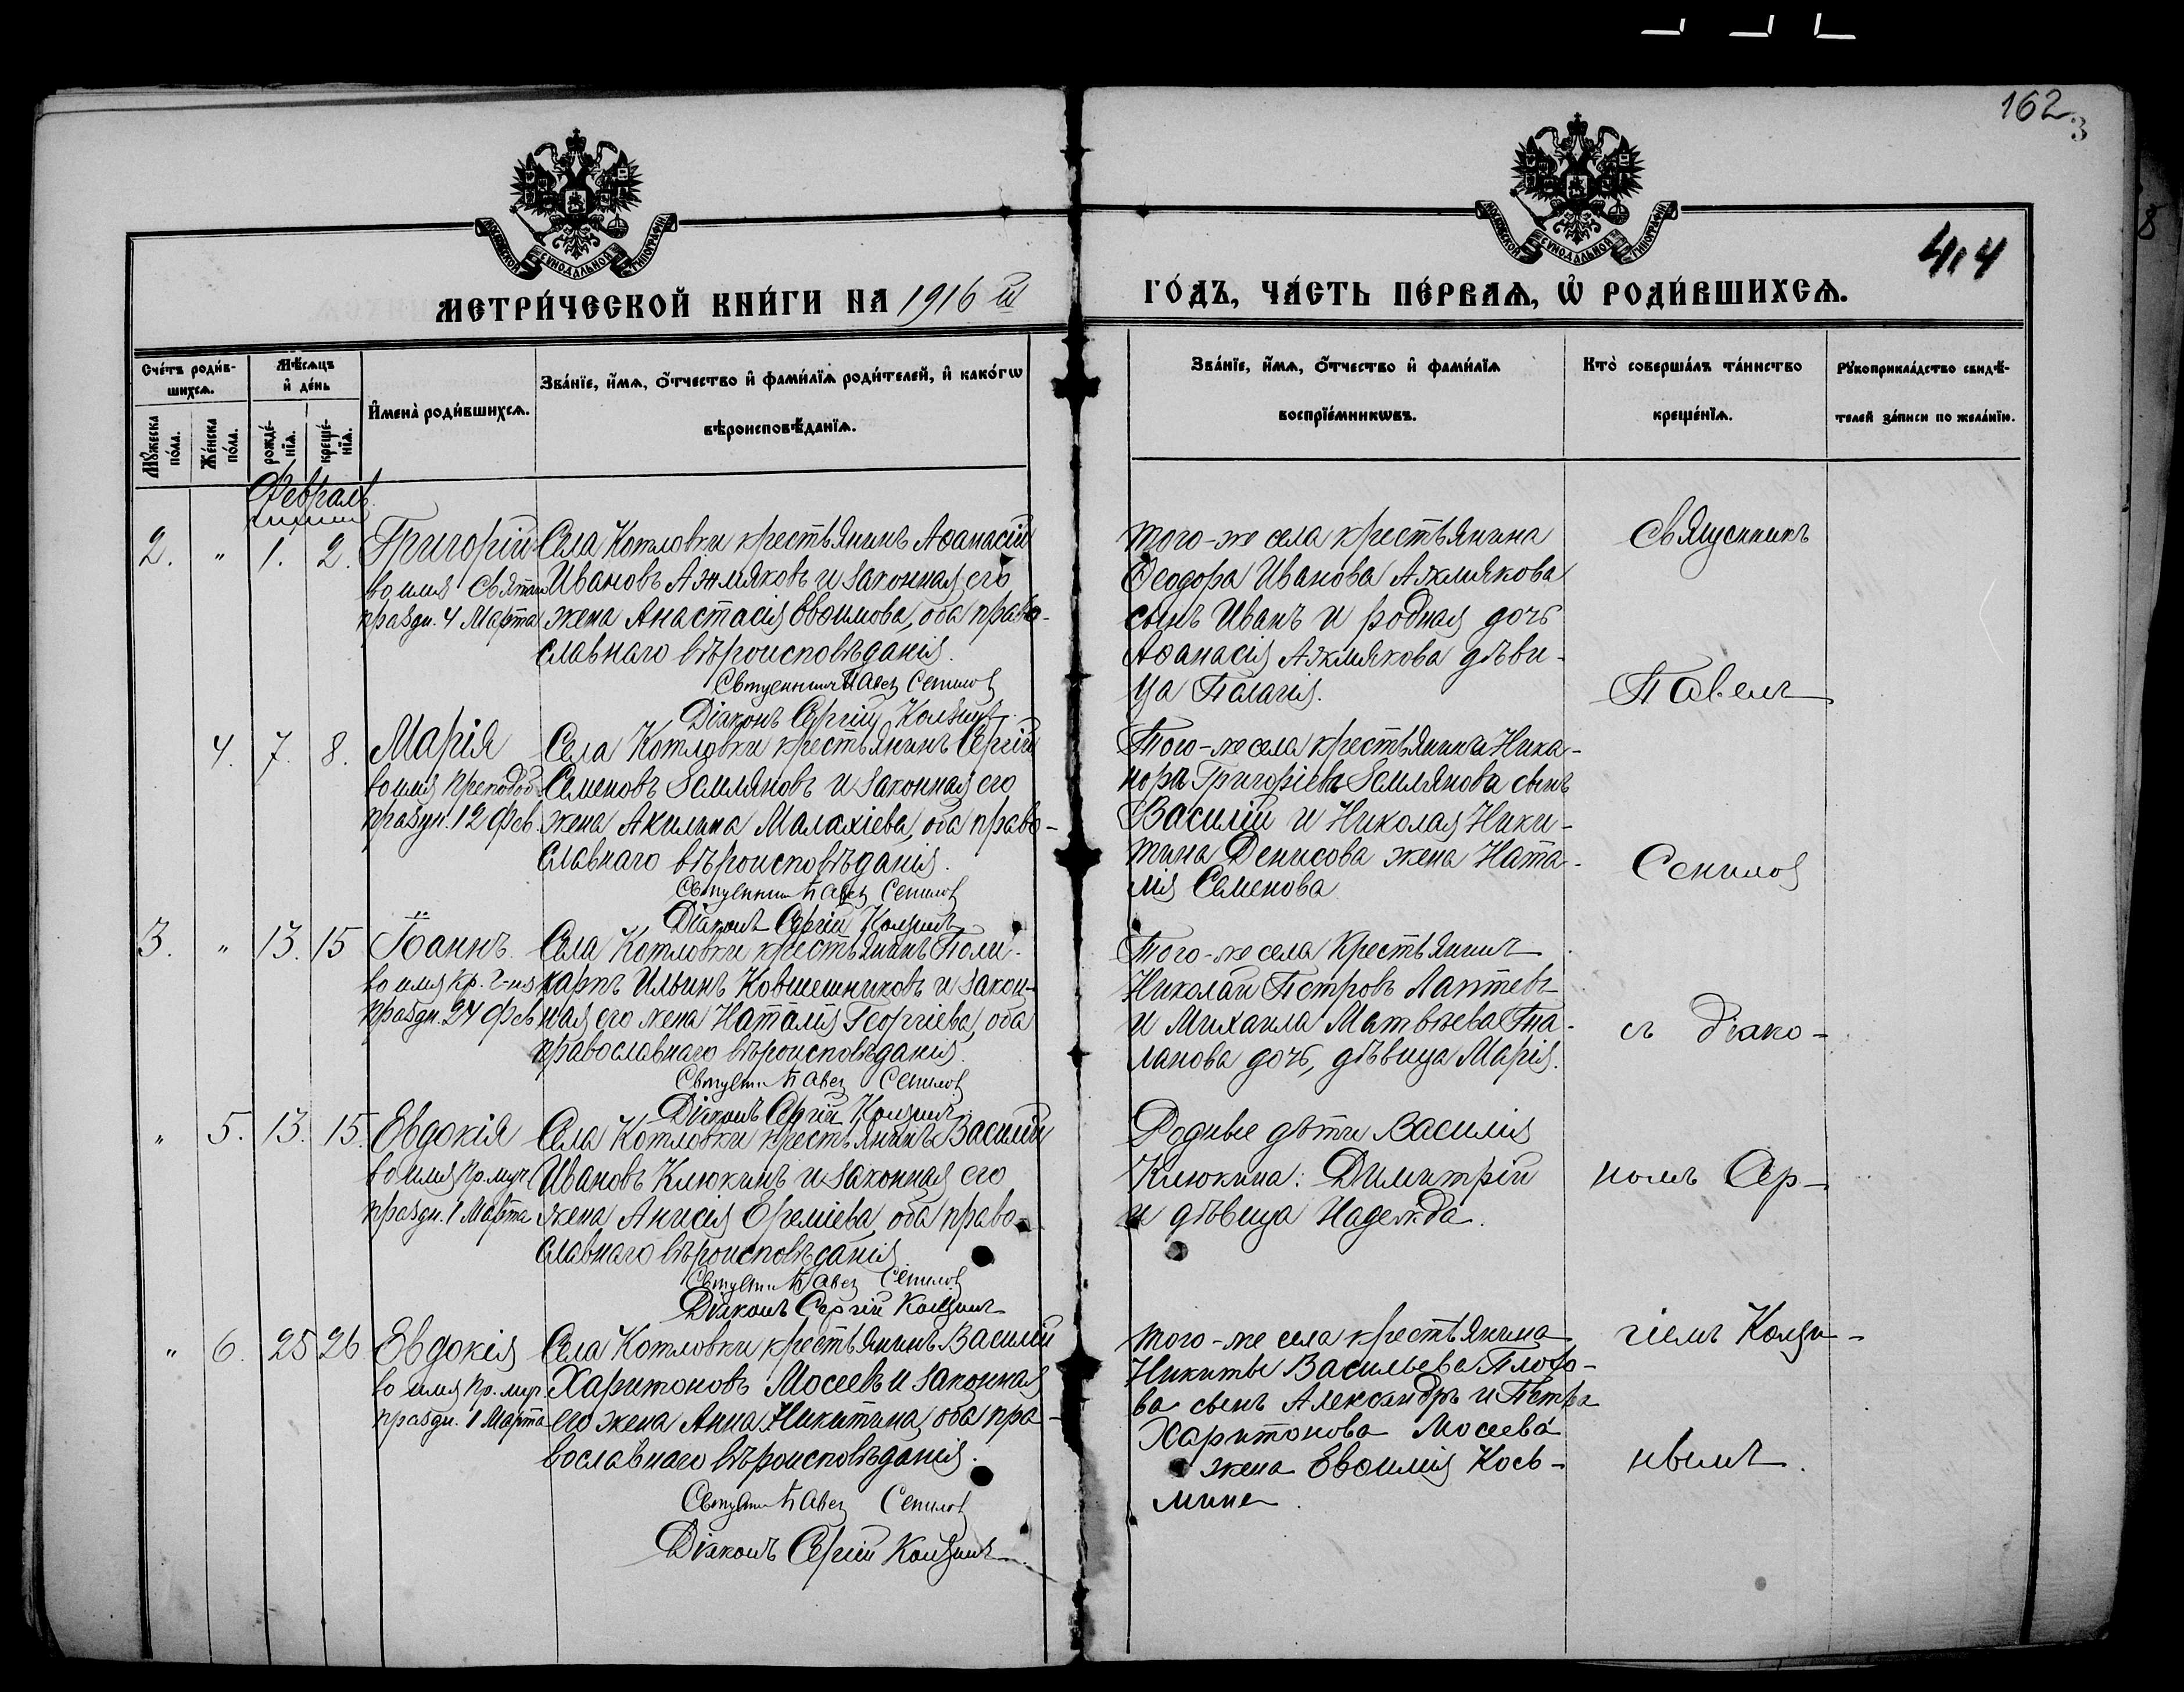 162
3
8
МОСКОВСКОЙ СѴНОДАЛЬНОЙ ТИПОГРАФІИ
МОСКОВСКОЙ СѴНОДАЛЬНОЙ ТИПОГРАФІИ
МЕТРИ́ЧЕСКОЙ КНИ́ГИ НА 1916 й
ГО́ДЪ, ЧА́СТЬ ПЕ́РВАѦ, Ѡ҆ РОДИ́ВШИХСѦ.
Сче́тъ роди́в-
шихсѧ.
Мꙋ́жеска по́ла.
Же́нска по́ла.
Мѣ́сѧцъ
и҆ де́нь
рожде́-
нїѧ.
креще́-
нїѧ.
И҆мена̀ роди́вшихсѧ.
Зва́нїе, и҆́мѧ, ѻ҆́тчество и҆ фами́лїѧ роди́телей, и҆ како́гѡ
вѣроисповѣ́данїѧ.
Зва́нїе, и҆́мѧ, ѻ҆́тчество и҆ фами́лїѧ
воспрїе́мникѡвъ.
Кто̀ соверша́лъ та́инство
креще́нїѧ.
Рꙋкоприкла́дство свидѣ́-
телей за́писи по жела́нїю.
Февраль
2. " 1. 2. Григорій
во имя Святит.
праздн. 4 Марта
Села Котловки крестьянинъ Аѳанасій
Ивановъ Ажмяковъ и законная его
жена Анастасія Евѳимова, оба право-
славнаго вѣроисповѣданія.
Священникъ Павелъ Сенилов
Діаконъ Сергій Колзинъ
того-же села крестьянина
Ѳеодора Иванова Ажмякова
сынъ Иванъ и родная дочь
Аѳанасія Ажмякова дѣви-
ца Палагія.
4. 7. 8. Марія
во имя Преподоб.
праздн. 12 Фев.
Села Котловки крестьянинъ Сергій
Семеновъ Земляновъ и законная его
жена Акилина Малахіева, оба право-
славнаго вѣроисповѣданія.
Священникъ Павелъ Сенилов
Діаконъ Сергій Колзинъ
Того-же села крестьянина Ника-
норъ Григоріевъ Землянова сынъ
Василій и Николая Ники-
тина Денисова жена Ната-
лія Семенова
3. " 13. 15 Іоаннъ.
во имя Кр. Г-ня
праздн. 24 Фев
Села Котловки крестьянинъ Поли-
карпъ Ильинъ Ковшешниковъ и закон-
ная его жена Наталія Георгіева, оба
православнаго вѣроисповѣданія.
Священникъ Павелъ Сенилов
Діаконъ Сергій Колзинъ
Того-же села Крестьянинъ
Николай Петровъ Лаптевъ
и Михаила Матвѣева Гна-
ланова дочь, дѣвица Марія.
" 5. 13. 15. Евдокія
во имя Пр.муч.
праздн. 1 Марта
Села Котловки крестьянинъ Василій
Ивановъ Клюкинъ и законная его
жена Анисія Еремiева, оба право-
славнаго вѣроисповѣданія
Священникъ Павелъ Сенилов
Діаконъ Сергій Колзинъ
Родные дѣти Василія
Клюкина: Димитрій
и дѣвица Надежда.
" 6. 25 26 Евдокія
во имя Пр. муч.
праздн. 1 Марта
Села Котловки крестьянинъ Василій
Харитоновъ Мосеевъ и законная
его жена Анна Никитина, оба пра-
вославнаго вѣроисповѣданія.
Священникъ Павелъ Сенилов
Діаконъ Сергій Колзинъ
того-же села крестьянина
Никиты Васильева Плото-
ва сынъ Александръ и Петра
Харитонова Мосеева
жена Евѳимія Кось-
мина.
Священникъ
Павелъ
Сенилов
съ діако-
номъ Сер-
гіемъ Колзи-
нымъ.